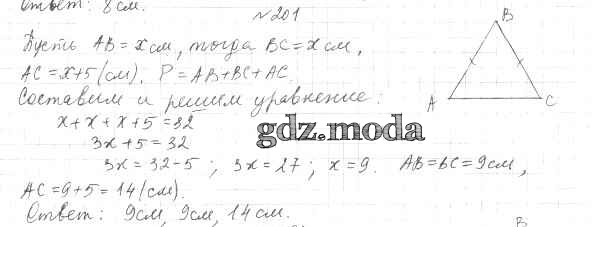 Ответ: 8 см.
№ 201
Пусть AB = x см, тогда BC = x см,
AC = x+5 (см). P = AB + BC + AC.
Составим и решим уравнение:
x + x + x + 5 = 32
3x + 5 = 32
3x = 32 - 5 ; 3x = 27 ; x = 9. AB = BC = 9 см,
AC = 9 + 5 = 14 (см).
Ответ: 9 см, 9 см, 14 см.
B
A
C
gdz.moda
B